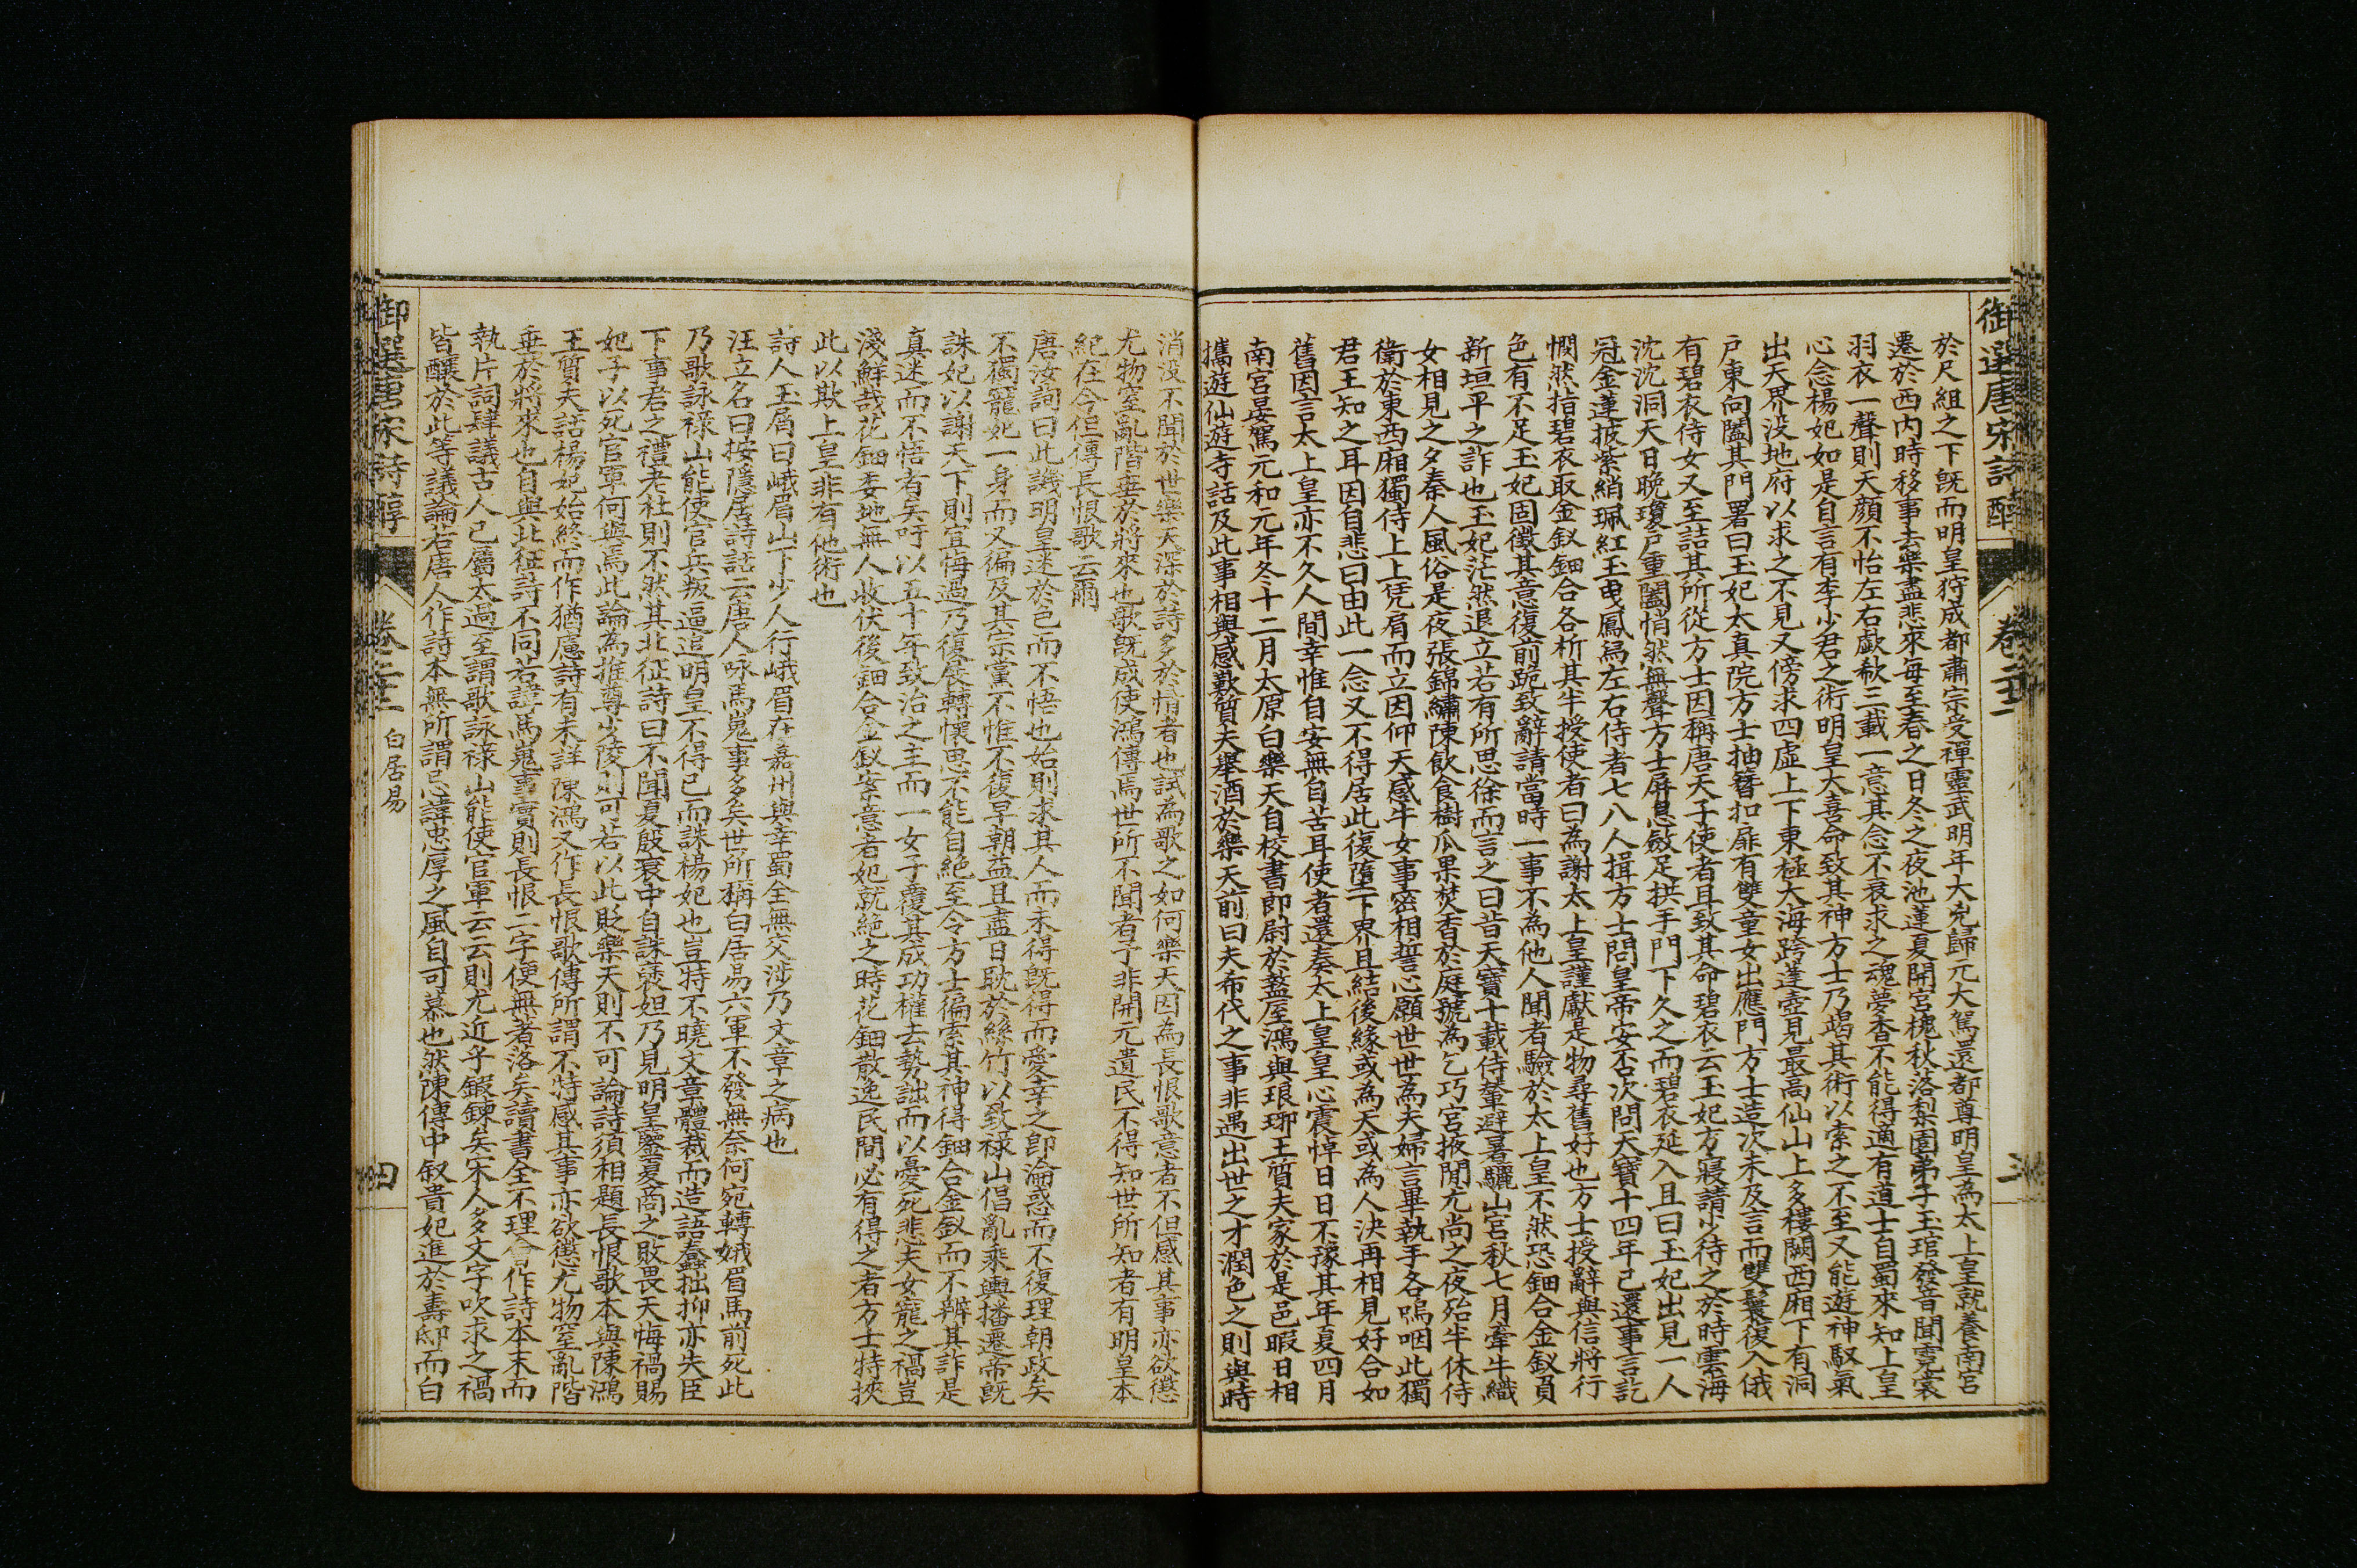 御選唐宋詩醇
卷二十二
三
於尺組之下旣而明皇狩成都肅宗受禪靈武明年大兇歸元大駕還都尊明皇為太上皇就養南宮
遷於西內時移事去樂盡悲來每至春之日冬之夜池蓮夏開宮槐秋落梨園弟子玉琯發音聞霓裳
羽衣一聲則天顏不怡左右歔欷三載一意其念不衰求之魂夢杳不能得適有道士自蜀來知上皇
心念楊妃如是自言有李少君之術明皇大喜命致其神方士乃竭其術以索之不至又能遊神馭氣
出天界没地府以求之不見又傍求四虛上下東極大海跨蓬壺見最高仙山上多樓闕西廂下有洞
戶東向闔其門署曰玉妃太真院方士抽簪扣扉有雙童女出應門方士造次未及言而雙鬟復入俄
有碧衣侍女又至詰其所從方士因稱唐天子使者且致其命碧衣云玉妃方寢請少待之於時雲海
沈沈洞天日晚瓊戶重闔悄然無聲方士屏息斂足拱手門下久之而碧衣延入且曰玉妃出見一人
冠金蓮披紫綃珮紅玉曳鳳舄左右侍者七八人揖方士問皇帝安否次問天寶十四年已還事言訖
憫然指碧衣取金釵鈿合各析其半授使者曰為謝太上皇謹獻是物尋舊好也方士授辭與信將行
色有不足玉妃固徵其意復前跪致辭請當時一事不為他人聞者驗於太上皇不然恐鈿合金釵負
新垣平之詐也玉妃茫然退立若有所思徐而言之曰昔天寶十載侍輦避暑驪山宮秋七月牽牛織
女相見之夕秦人風俗是夜張錦繡陳飲食樹瓜果焚香於庭號為乞巧宮掖間尤尚之夜殆半休侍
衛於東西廂獨侍上上凭肩而立因仰天感牛女事密相誓心願世世為夫婦言畢執手各嗚咽此獨
君王知之耳因自悲曰由此一念又不得居此復墮下界且結後緣或為天或為人決再相見好合如
舊因言太上皇亦不久人間幸惟自安無自苦耳使者還奏太上皇皇心震悼日日不豫其年夏四月
南宮晏駕元和元年冬十二月太原白樂天自校書郎尉於盩厔鴻與琅琊王質夫家於是邑暇日相
攜遊仙遊寺話及此事相與感歎質夫舉酒於樂天前曰夫希代之事非遇出世之才潤色之則與時
消沒不聞於世樂天深於詩多於情者也試為歌之如何樂天因為長恨歌意者不但感其事亦欲懲
尤物窒亂階垂於將來也歌旣成使鴻傳焉世所不聞者予非開元遺民不得知世所知者有明皇本
紀在今但傳長恨歌云爾
唐汝詢曰此譏明皇迷於色而不悟也始則求其人而未得旣得而愛幸之卽淪惑而不復理朝政矣
不獨寵妃一身而又徧及其宗黨不惟不復早朝益且盡日耽於絲竹以致祿山倡亂乘輿播遷帝旣
誅妃以謝天下則宜悔過乃復展轉懷思不能自絕至令方士徧索其神得鈿合金釵而不辨其詐是
真迷而不悟者矣吁以五十年致治之主而一女子覆其成功權去勢詘而以憂死悲夫女寵之禍豈
淺鮮哉花鈿委地無人收伏後鈿合金釵案意者妃就絕之時花鈿散逸民間必有得之者方士特挾
此以欺上皇非有他術也
詩人玉屑曰峨眉山下少人行峨眉在嘉州與幸蜀全無交涉乃文章之病也
汪立名曰按隱居詩話云唐人咏馬嵬事多矣世所稱白居易六軍不發無奈何宛轉蛾眉馬前死此
乃歌詠祿山能使官兵叛逼迫明皇不得已而誅楊妃也豈特不曉文章體裁而造語蠢拙抑亦失臣
下事君之禮老杜則不然其北征詩曰不聞夏殷衰中自誅褒妲乃見明皇鑒夏商之敗畏天悔禍賜
妃子以死官軍何與焉此論為推尊少陵則可若以此貶樂天則不可論詩須相題長恨歌本與陳鴻
王質夫話楊妃始終而作猶慮詩有未詳陳鴻又作長恨歌傳所謂不特感其事亦欲懲尤物窒亂階
垂於將來也自與北征詩不同若諱馬嵬事實則長恨二字便無著落矣讀書全不理會作詩本末而
執片詞肆議古人已屬太過至謂歌詠祿山能使官軍云云則尤近乎鍛鍊矣宋人多文字吹求之禍
皆釀於此等議論若唐人作詩本無所謂忌諱忠厚之風自可慕也然陳傳中叙貴妃進於壽邸而白
御選唐宋詩醇
卷二十二
白居易
四